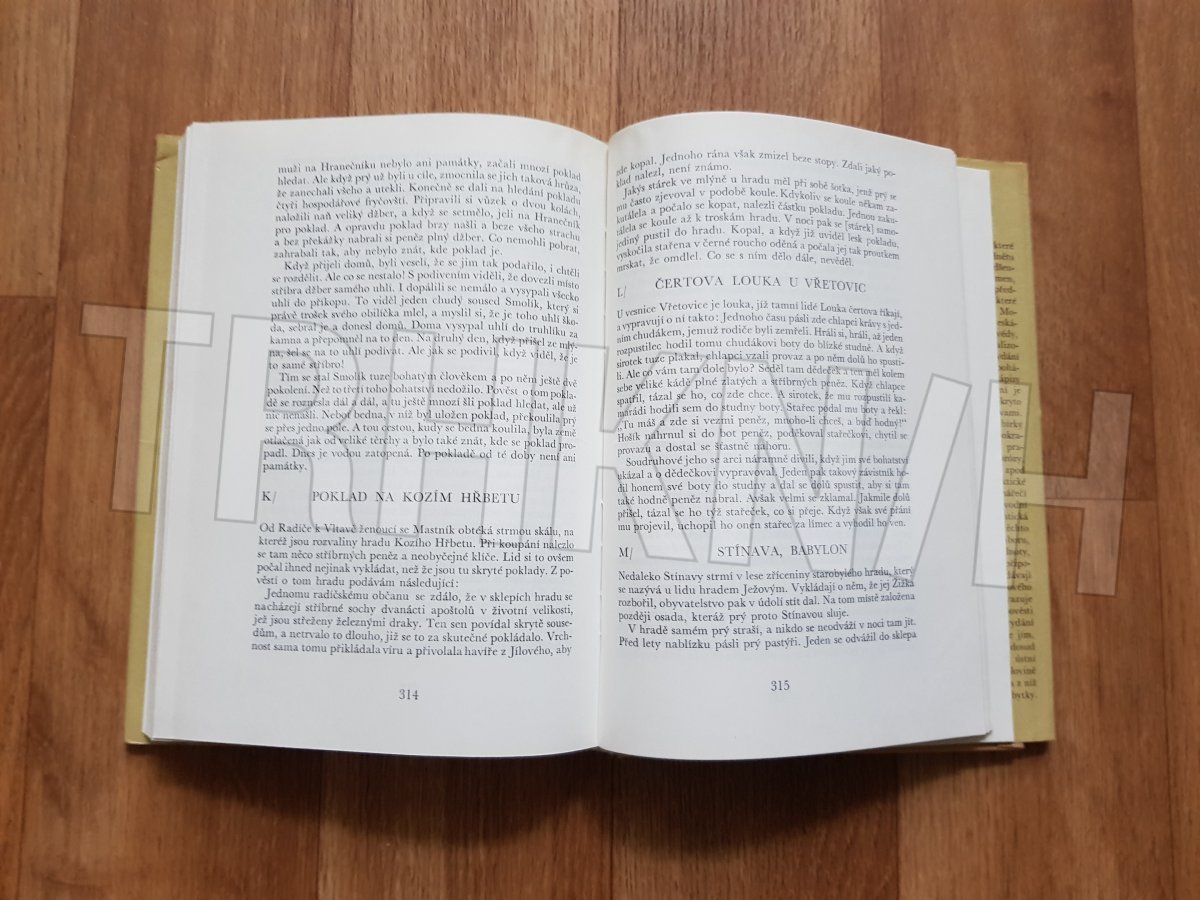 muži na Hranečníku nebylo ani památky, začali mnozí poklad
hledat. Ale když prý už byli u cíle, zmocnila se jich taková hrůza,
že zanechali všeho a utekli. Konečně se dali na hledání pokladu
čtyři hospodářové fryčovští. Připravili si vůzek o dvou kolách,
naložili naň veliký džber, a když se setmělo, jeli na Hranečník
pro poklad. A opravdu poklad brzy našli a beze všeho strachu
a bez překážky nabrali si peněz plný džber. Co nemohli pobrat,
zahrabali tak, aby nebylo znát, kde poklad je.
Když přijeli domů, byli veselí, že se jim tak podařilo, i chtěli
se rozdělit. Ale co se nestalo! S podivením viděli, že dovezli místo
stříbra džber samého uhlí. I dopálili se nemálo a vysypali všecko
uhlí do příkopu. To viděl jeden chudý soused Smolík, který si
právě trošek svého obilíčka mlel, a myslil si, že je toho uhlí ško-
da, sebral je a donesl domů. Doma vysypal uhlí do truhlíku za
kamna a přepomněl na to den. Na druhý den, když přišel ze mlý-
na, šel se na to uhlí podívat. Ale jak se podivil, když viděl, že je
to samé stříbro!
Tím se stal Smolík tuze bohatým člověkem a po něm ještě dvě
pokolení. Než to třetí toho bohatství nedožilo. Pověst o tom pokla-
dě se roznesla dál a dál, a tu ještě mnozí šli poklad hledat, ale už
nic nenašli. Neboť bedna, v níž byl uložen poklad, překoulila prý
se přes jedno pole. A tou cestou, kudy se bedna koulila, byla země
otlačená jak od veliké těrchy a bylo také znát, kde se poklad pro-
padl. Dnes je vodou zatopená. Po pokladě od té doby není ani
památky.
K/ POKLAD NA KOZÍM HŘBETU
Od Radíče k Vltavě ženoucí se Mastník obtéká strmou skálu, na
kteréž jsou rozvaliny hradu Kozího Hřbetu. Při koupání nalezlo
se tam něco stříbrných peněz a neobyčejné klíče. Lid si to ovšem
počal ihned nejinak vykládat, než že jsou tu skryté poklady. Z po-
věstí o tom hradu podávám následující:
Jednomu radíčskému občanu se zdálo, že v sklepích hradu se
nacházejí stříbrné sochy dvanácti apoštolů v životní velikosti,
jež jsou střeženy železnými draky. Ten sen povídal skrytě souse-
dům, a netrvalo to dlouho, již se to za skutečné pokládalo. Vrch-
nost sama tomu přikládala víru a přivolala havíře z Jílového, aby
314
zde kopal. Jednoho rána však zmizel beze stopy. Zdali jaký po-
klad nalezl, není známo.
Jakýs stárek ve mlýně u hradu měl při sobě šotka, jenž prý se
mu často zjevoval v podobě koule. Kdykoliv se koule někam za-
kutálela a počalo se kopat, nalezli částku pokladu. Jednou zaku-
tálela se koule až k troskám hradu. V noci pak se [stárek] samo-
jediný pustil do hradu. Kopal, a když již uviděl lesk pokladu,
vyskočila stařena v černé roucho oděná a počala jej tak proutkem
mrskat, že omdlel. Co se s ním dělo dále, nevěděl.
L/ ČERTOVA LOUKA U VŘETOVIC
U vesnice Vřetovice je louka, jíž tamní lidé Louka čertova říkají,
a vypravují o ní takto: Jednoho času pásli zde chlapci krávy s jed-
ním chudákem, jemuž rodiče byli zemřeli. Hráli si, hráli, až jeden
rozpustilec hodil tomu chudákovi boty do blízké studně. A když
sirotek tuze plakal, chlapci vzali provaz a po něm dolů ho spusti-
li. Ale co vám tam dole bylo? Seděl tam dědeček a ten měl kolem
sebe veliké kádě plné zlatých a stříbrných peněz. Když chlapce
spatřil, tázal se ho, co zde chce. A sirotek, že mu rozpustilí ka-
marádi hodili sem do studny boty. Stařec podal mu boty a řekl:
„Tu máš a zde si vezmi peněz, mnoho-li chceš, a buď hodný!“
Hošík nahrnul si do bot peněz, poděkoval stařečkovi, chytil se
provazu a dostal se šťastně nahoru.
Soudruhové jeho se arci náramně divili, když jim své bohatství
ukázal a o dědečkovi vypravoval. Jeden pak takový závistník ho-
dil honem své boty do studny a dal se dolů spustit, aby si tam
také hodně peněz nabral. Avšak velmi se zklamal. Jakmile dolů
přišel, tázal se ho týž stařeček, co si přeje. Když však své přání
mu projevil, uchopil ho onen stařec za límec a vyhodil ho ven.
M/ STÍNAVA, BABYLON
Nedaleko Stínavy strmí v lese zříceniny starobylého hradu, který
se nazývá u lidu hradem Ježovým. Vykládají o něm, že jej Žižka
rozbořil, obyvatelstvo pak v údolí stít dal. Na tom místě založena
později osada, kteráž prý proto Stínavou sluje.
V hradě samém prý straší, a nikdo se neodváží v noci tam jít.
Před lety nablízku pásli prý pastýři. Jeden se odvážil do sklepa
315
TRHKNIH